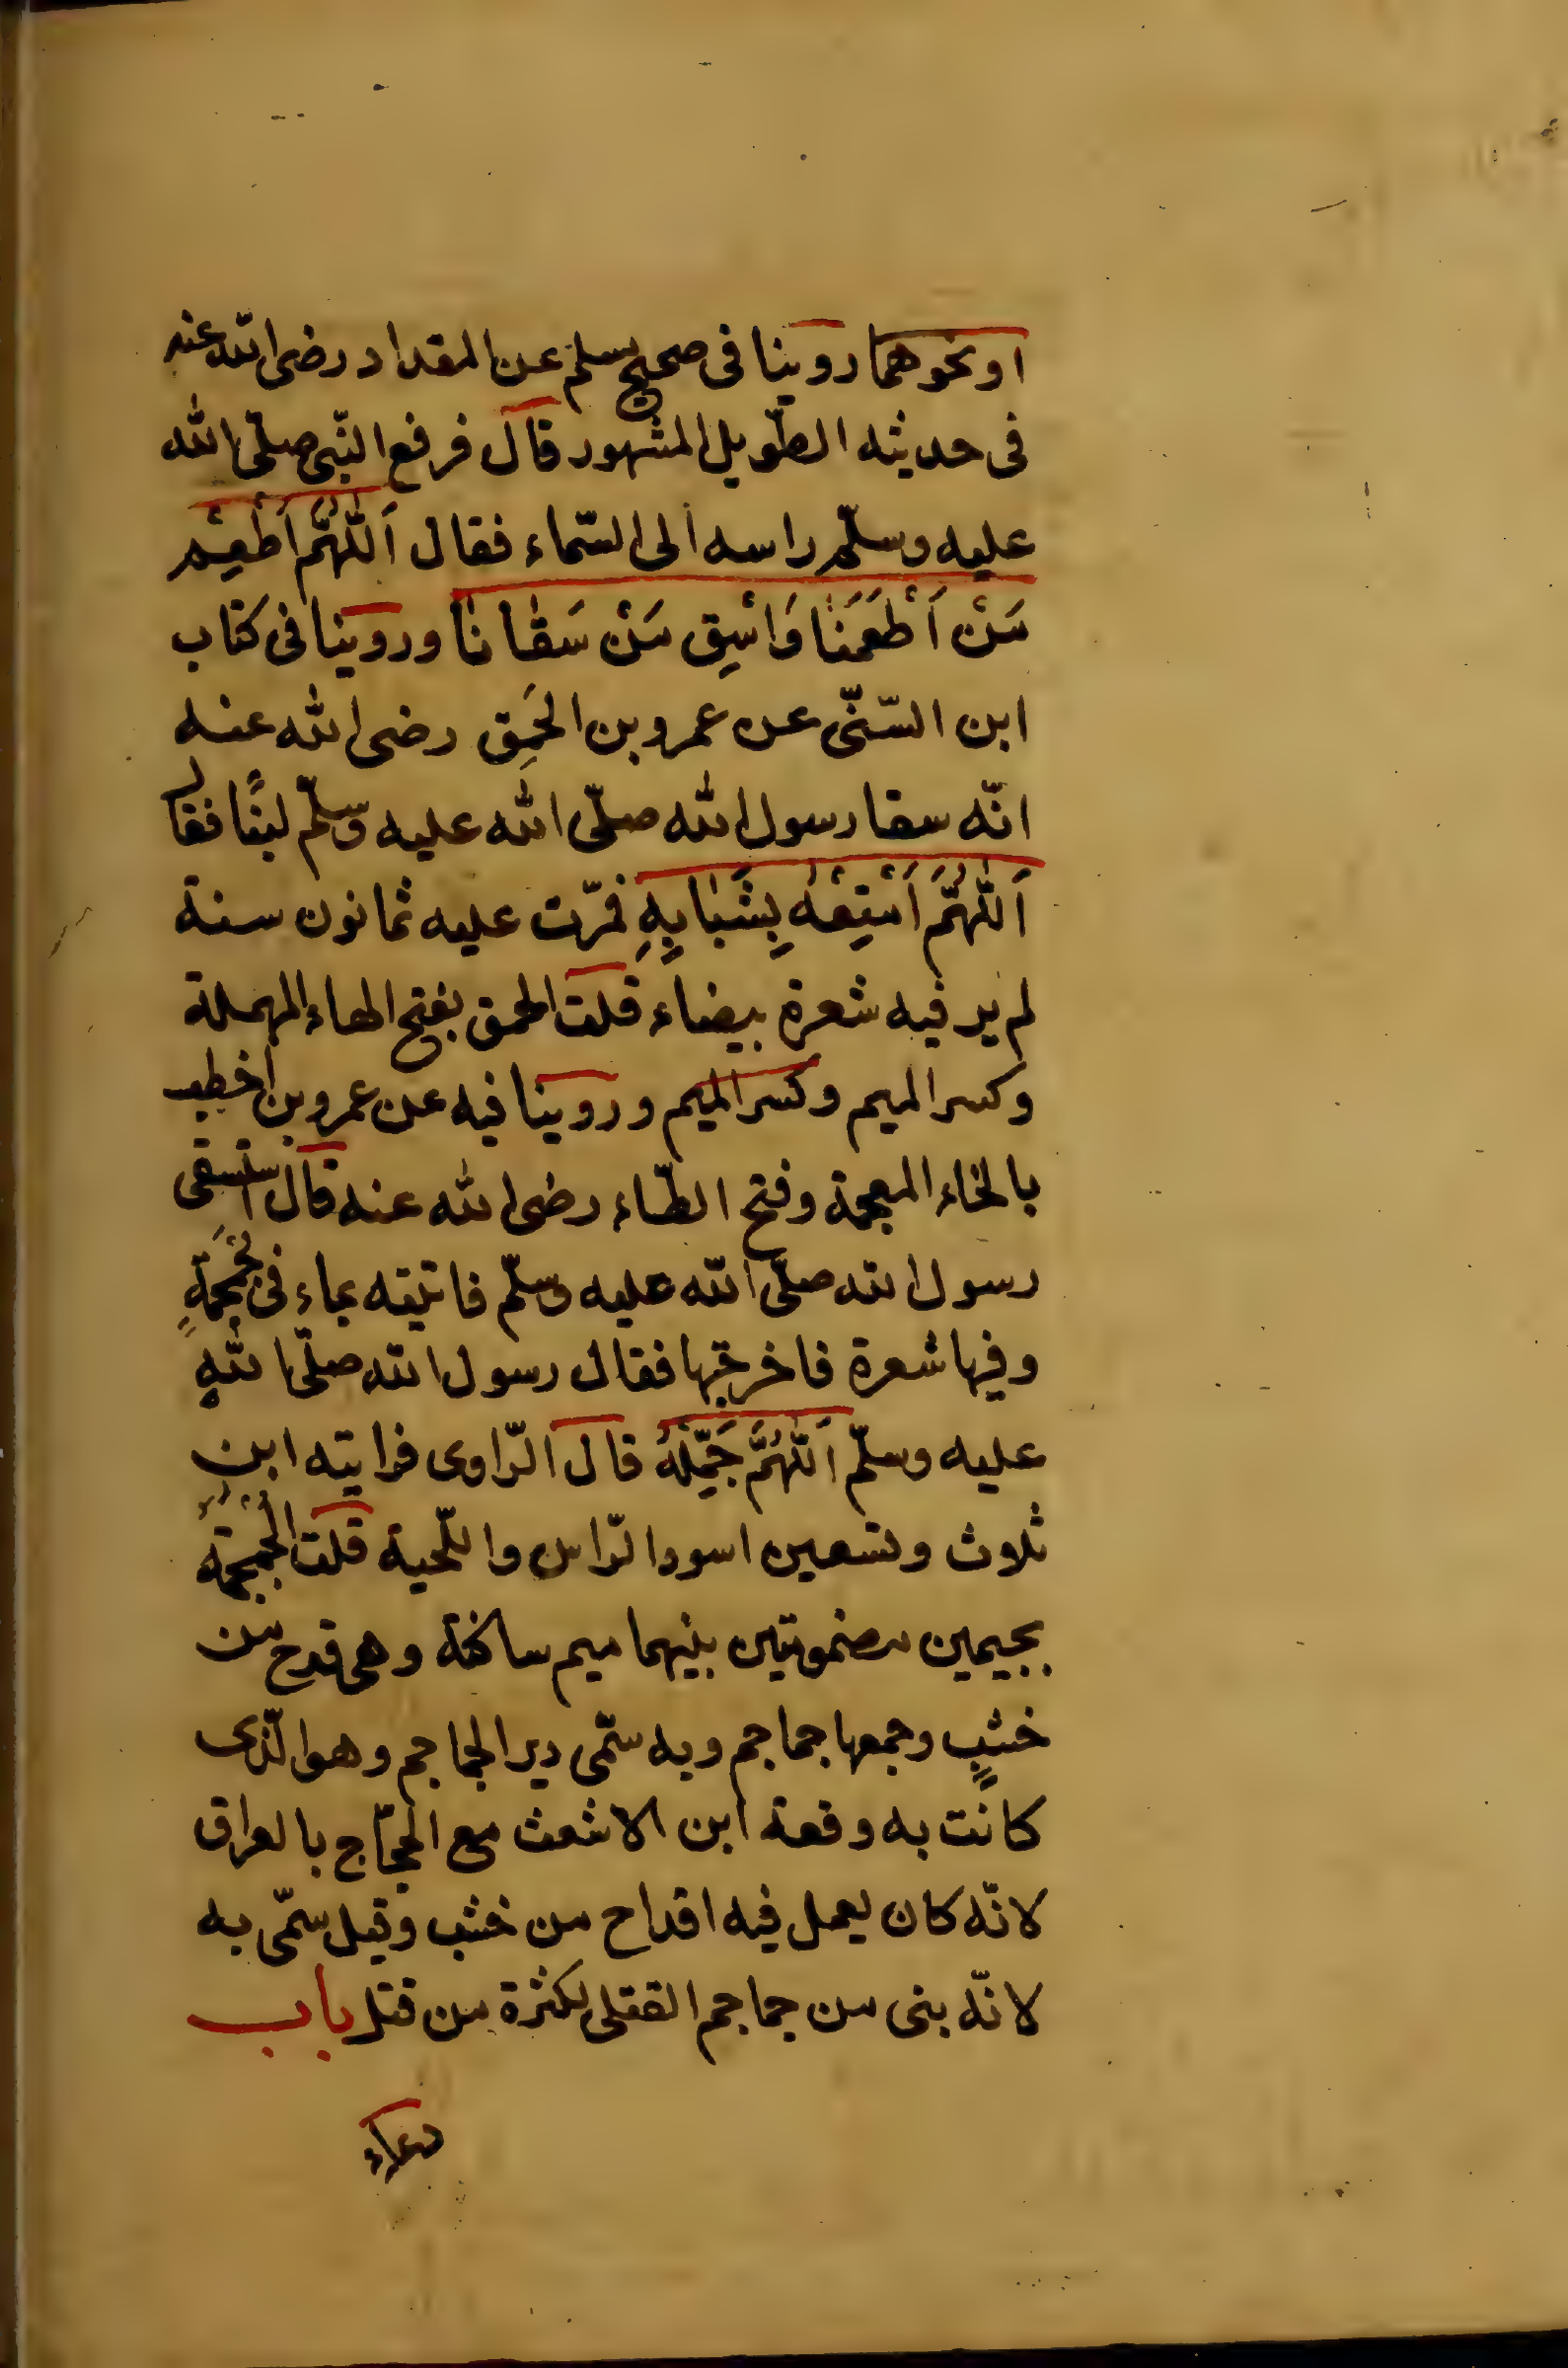 او نحوهما روينا فى صحيح مسلم عن المقداد رضى الله عنه
فى حديثه الطّويل المشهور قال فرفع النّبى صلّى الله
عليه وسلّم راسه الى السّماء فقال اَللّٰهُمَّ اَطْعِمْ
مَنْ اَطْعَمَنَا وَاسْقِ مَنْ سَقٰانَا وروينا فى كتاب
ابن السّنّى عن عمرو بن الحَمِق رضى الله عنه
انّه سقا رسول الله صلّى الله عليه وسلّم لبنًا فقال
اَللّٰهُمَّ اَمْتِعْهُ بِشَبٰابِهِ فمرّت عليه ثمانون سنة
لم ير فيه شعرة بيضاء قلت الحمق بفتح الحاء المهملة
وكسر الميم وكسر الميم وروينا فيه عن عمرو بن اخطب
بالخاء المعجمة وفتح الطّاء رضى الله عنه قال استسقى
رسول الله صلّى الله عليه وسلّم فاتيته بماء فى جُمْجُمَةٍ
وفيها شعرة فاخرجتها فقال رسول الله صلّى الله
عليه وسلّم اَللّٰهُمَّ جَمِّلْهُ قال الرّاوى فرايته ابن
ثلاث وتسعين اسود الرّاس واللّحية قلت الجُمْجُمَةُ
بجيمين مضمومتين بينهما ميم ساكنة وهى قدح من
خشبٍ وجمعها جماجم وبه سمّى دير الجماجم وهو الّذى
كانت به وقعة ابن الاشعث مع الحجّاج بالعراق
لانّه كان يعمل فيه اقداح من خشب وقيل سمّى به
لانّه بنى من جماجم القتلى لكثرة من قتل باب
دعاء